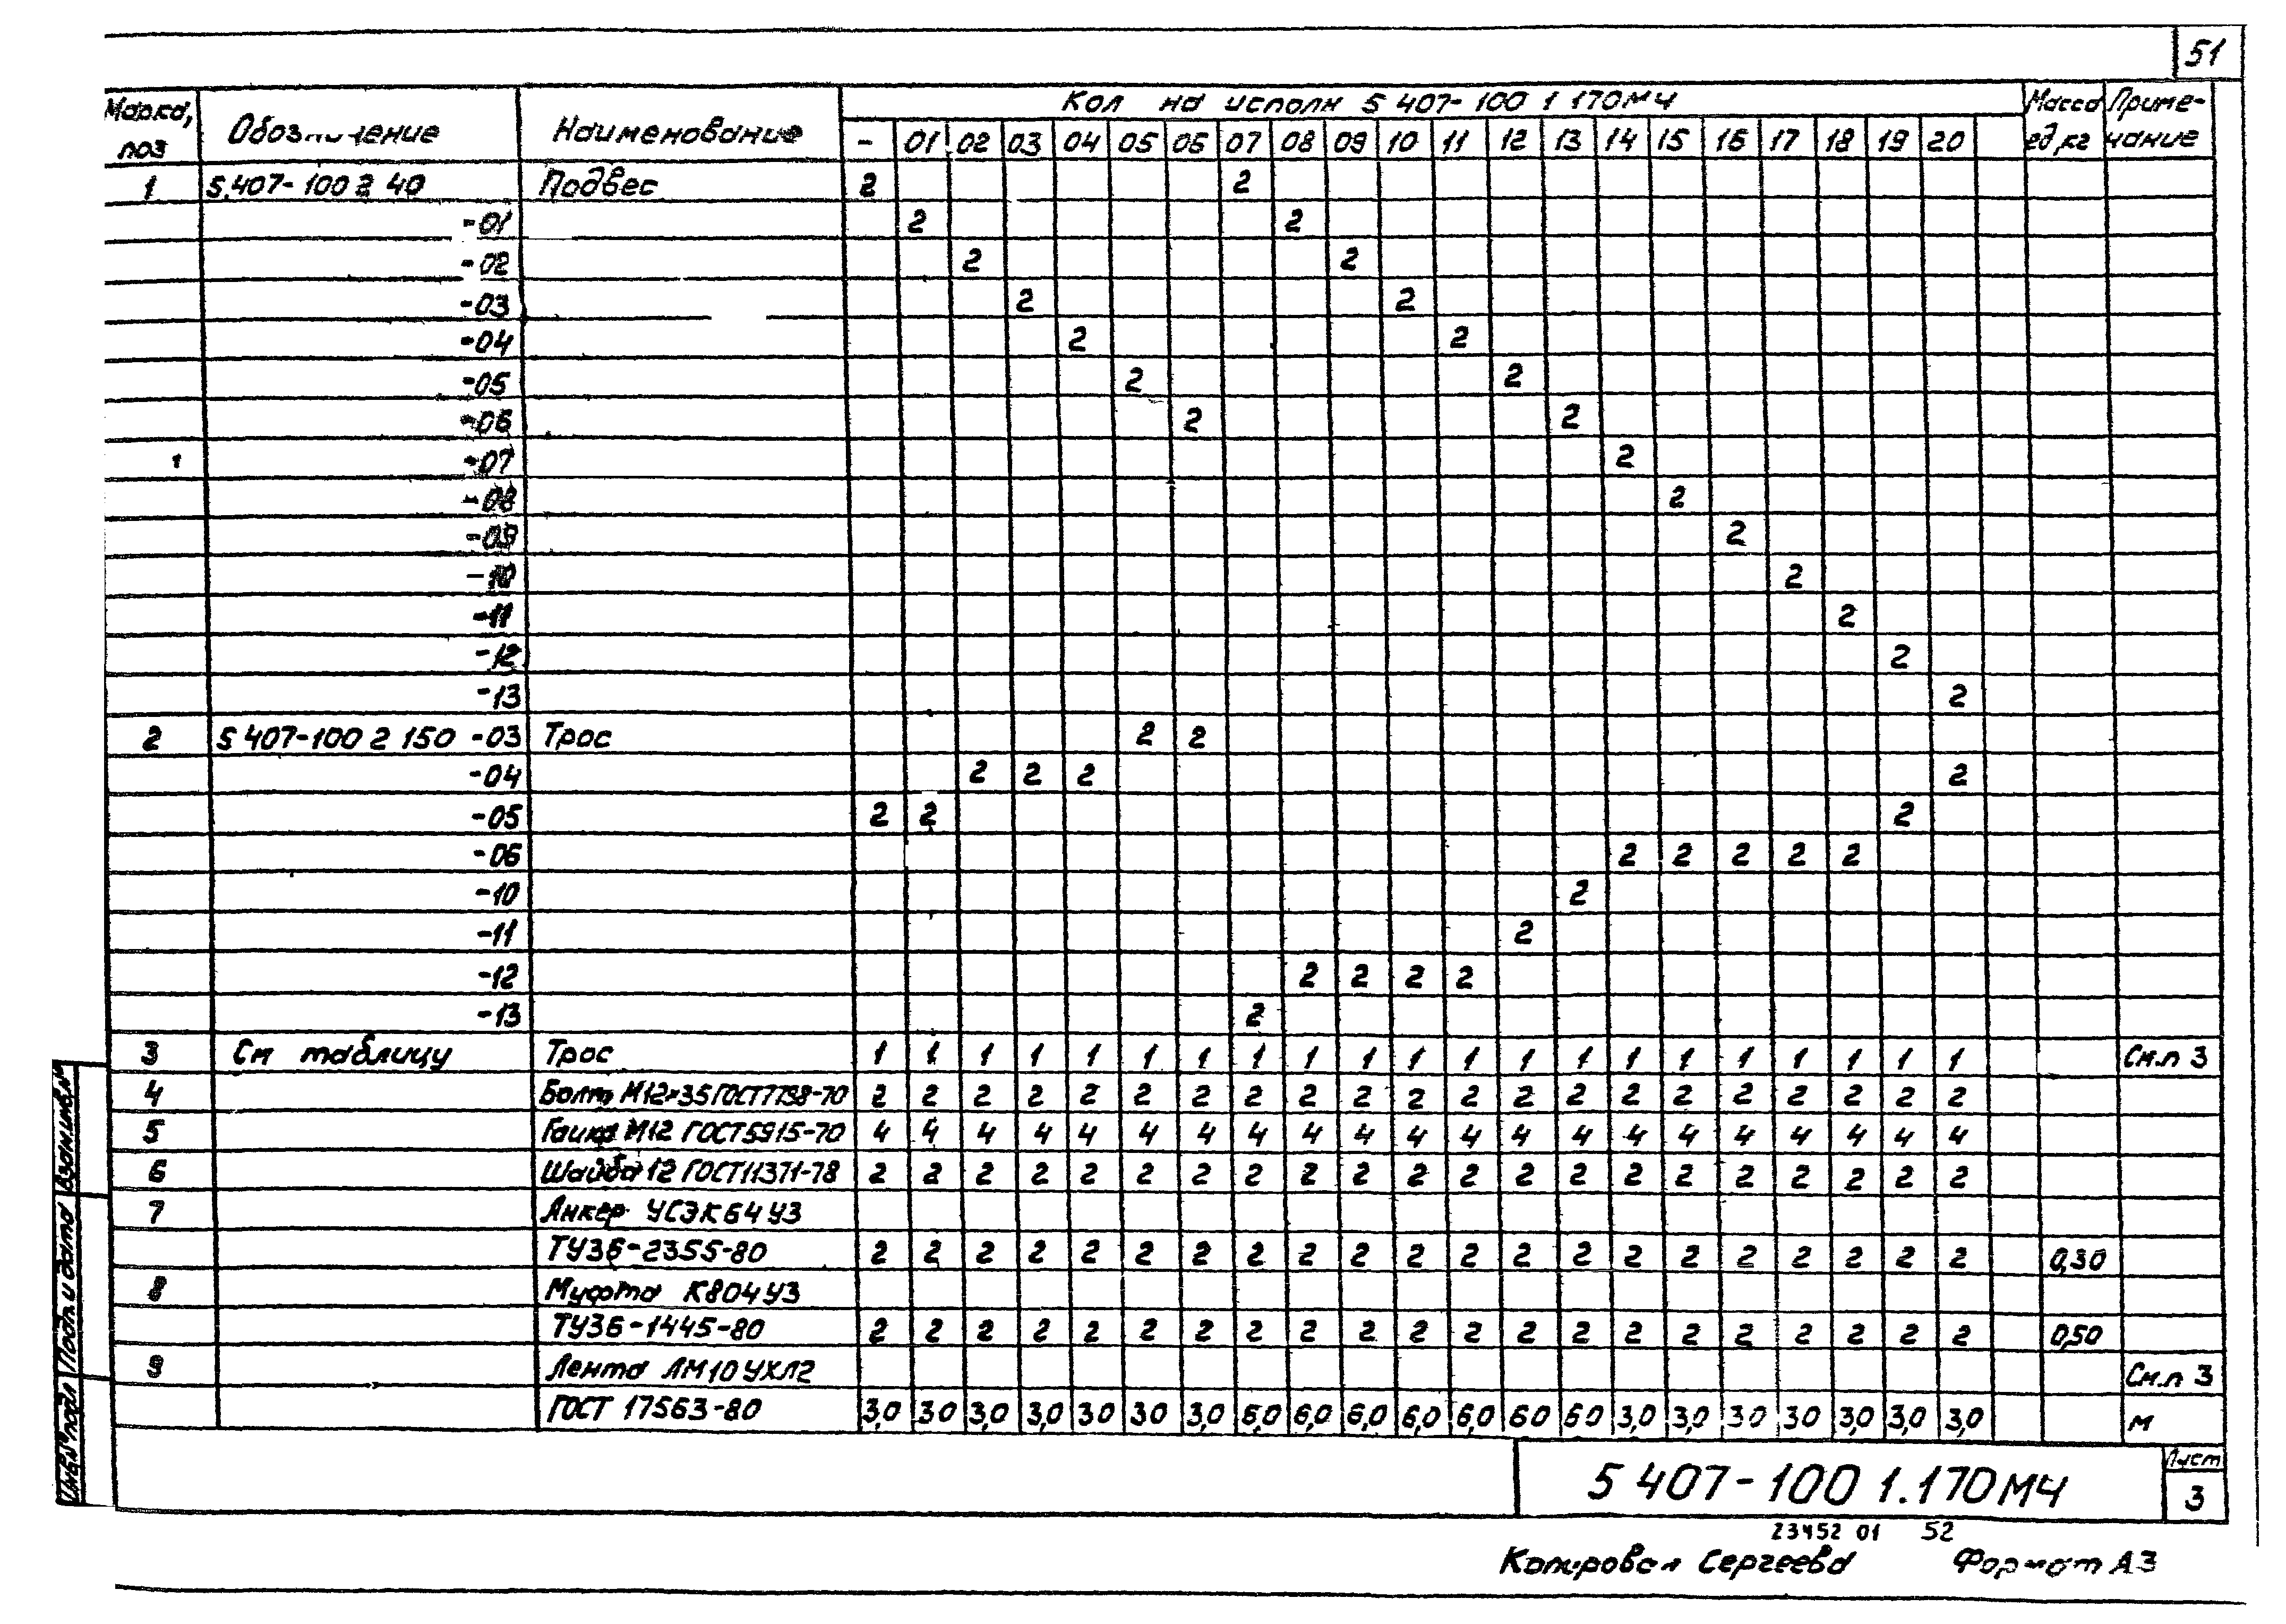 51
Марка, поз Обозначение Наименование Кол на исполн 5 407-100 1 170МЧ Масса ед, кг Приме-чание
- 01 02 03 04 05 06 07 08 09 10 11 12 13 14 15 16 17 18 19 20
1 5.407-100 2 40 Подвес 2 2
-01 2 2
-02 2 2
-03 2 2
-04 2 2
-05 2 2
-06 2 2
-07 2
-08 2
-09 2
-10 2
-11 2
-12 2
-13 2
2 5 407-100 2 150 -03 Трос 2 2
-04 2 2 2 2
-05 2 2 2
-06 2 2 2 2 2
-10 2
-11 2
-12 2 2 2 2
-13 2
3 См таблицу Трос 1 1 1 1 1 1 1 1 1 1 1 1 1 1 1 1 1 1 1 1 1 См.п 3
4 Болт М12×35 ГОСТ7798-70 2 2 2 2 2 2 2 2 2 2 2 2 2 2 2 2 2 2 2 2 2
5 Гайка М12 ГОСТ5915-70 4 4 4 4 4 4 4 4 4 4 4 4 4 4 4 4 4 4 4 4 4
6 Шайба 12 ГОСТ11371-78 2 2 2 2 2 2 2 2 2 2 2 2 2 2 2 2 2 2 2 2 2
7 Анкер УСЭК64У3
ТУ36-2355-80 2 2 2 2 2 2 2 2 2 2 2 2 2 2 2 2 2 2 2 2 2 0,30
8 Муфта К804У3
ТУ36-1445-80 2 2 2 2 2 2 2 2 2 2 2 2 2 2 2 2 2 2 2 2 2 0,50
9 Лента ЛМ10УХЛ2 См.п 3
ГОСТ 17563-80 3,0 30 3,0 3,0 30 30 3,0 6,0 6,0 6,0 6,0 6,0 60 60 3,0 3,0 30 30 3,0 3,0 3,0 м
Инв.№ подл Подп. и дата Взам.инв.№
5 407-100 1.170МЧ
Лист
3
23452 01 52
Копировал Сергеева Формат А3